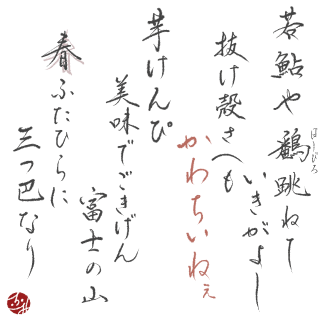 若鮎や鸛跳ねて
はしびろ
いきがよし
抜け殻さへも
かわちいねぇ
芋けんぴ
美味でごきげん
富士の山
春ふたひらに
三つ巴なり